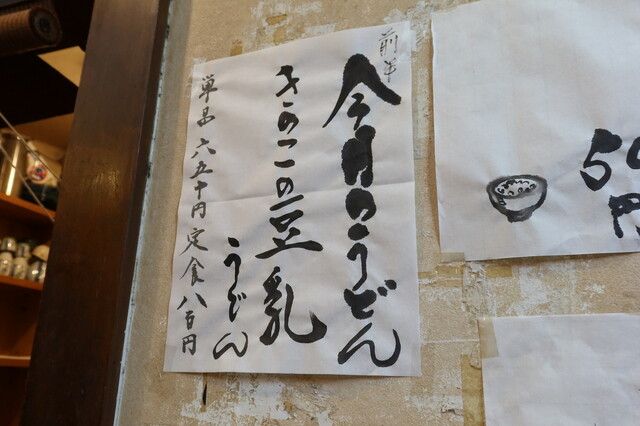 前半
今月のうどん
きのこの豆乳
うどん
単品 六五十円 定食 八百円
50
円